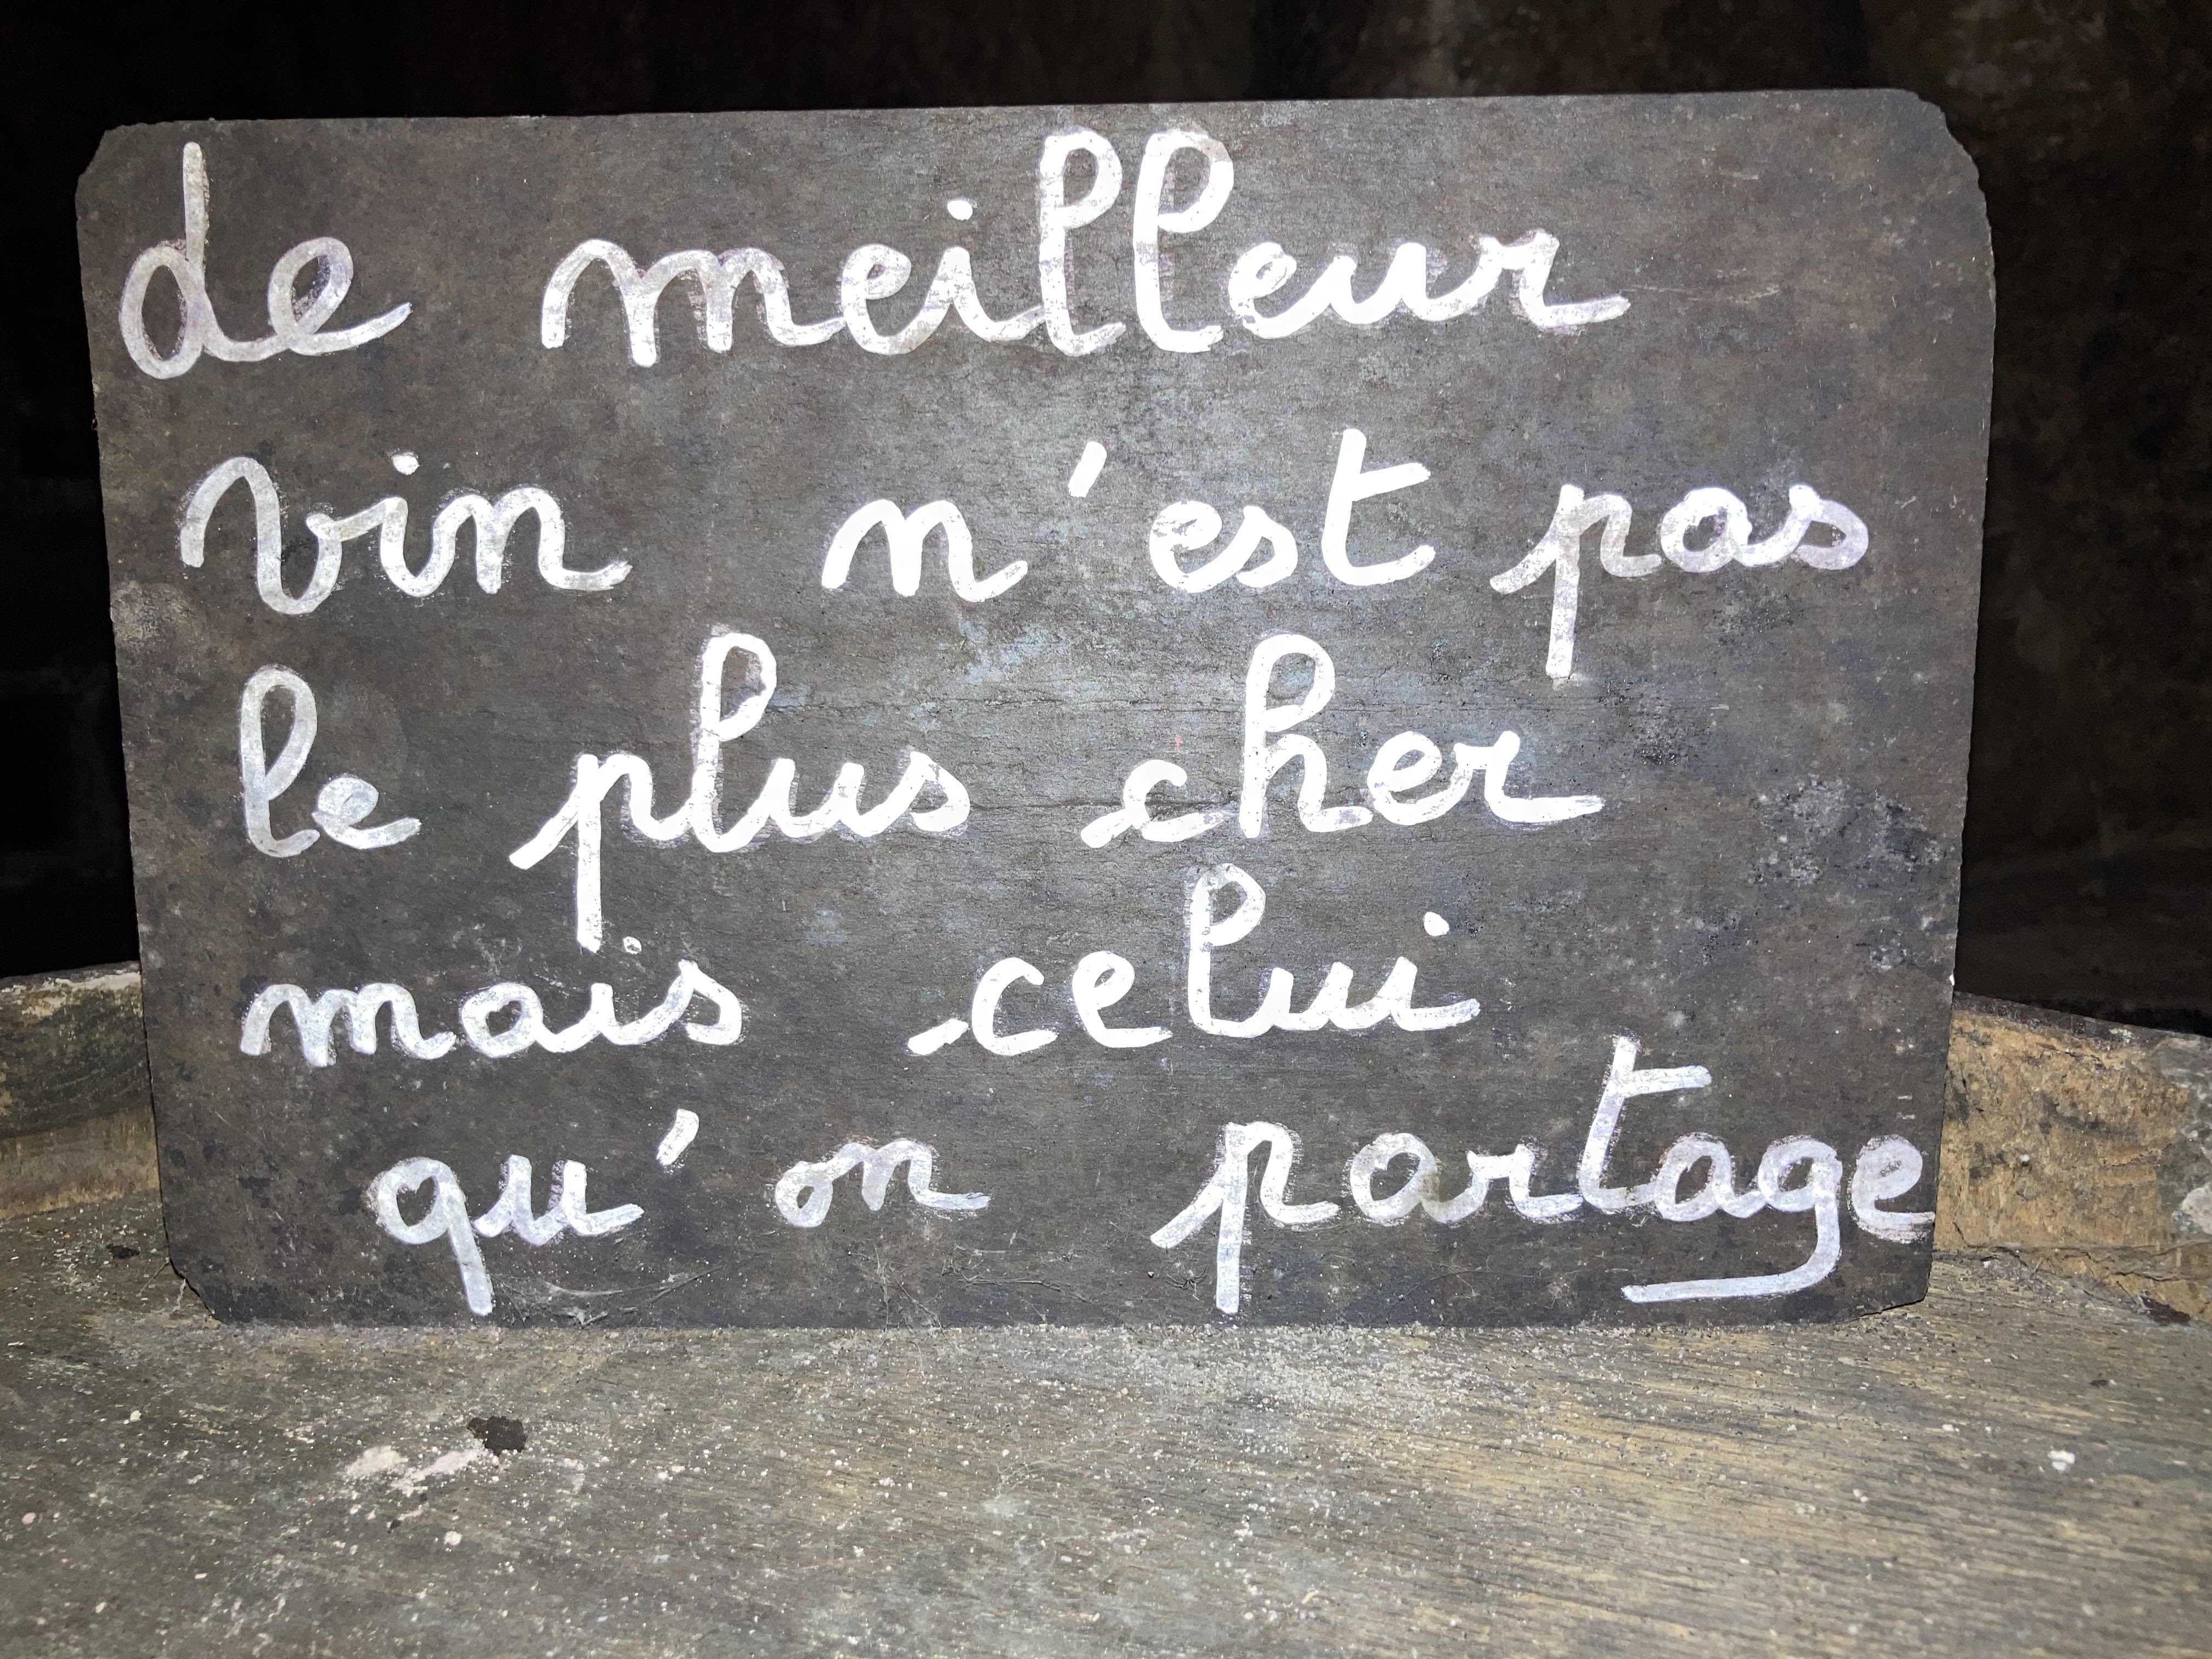 de meilleur
vin n'est pas
le plus cher
mais celui
qu'on partage